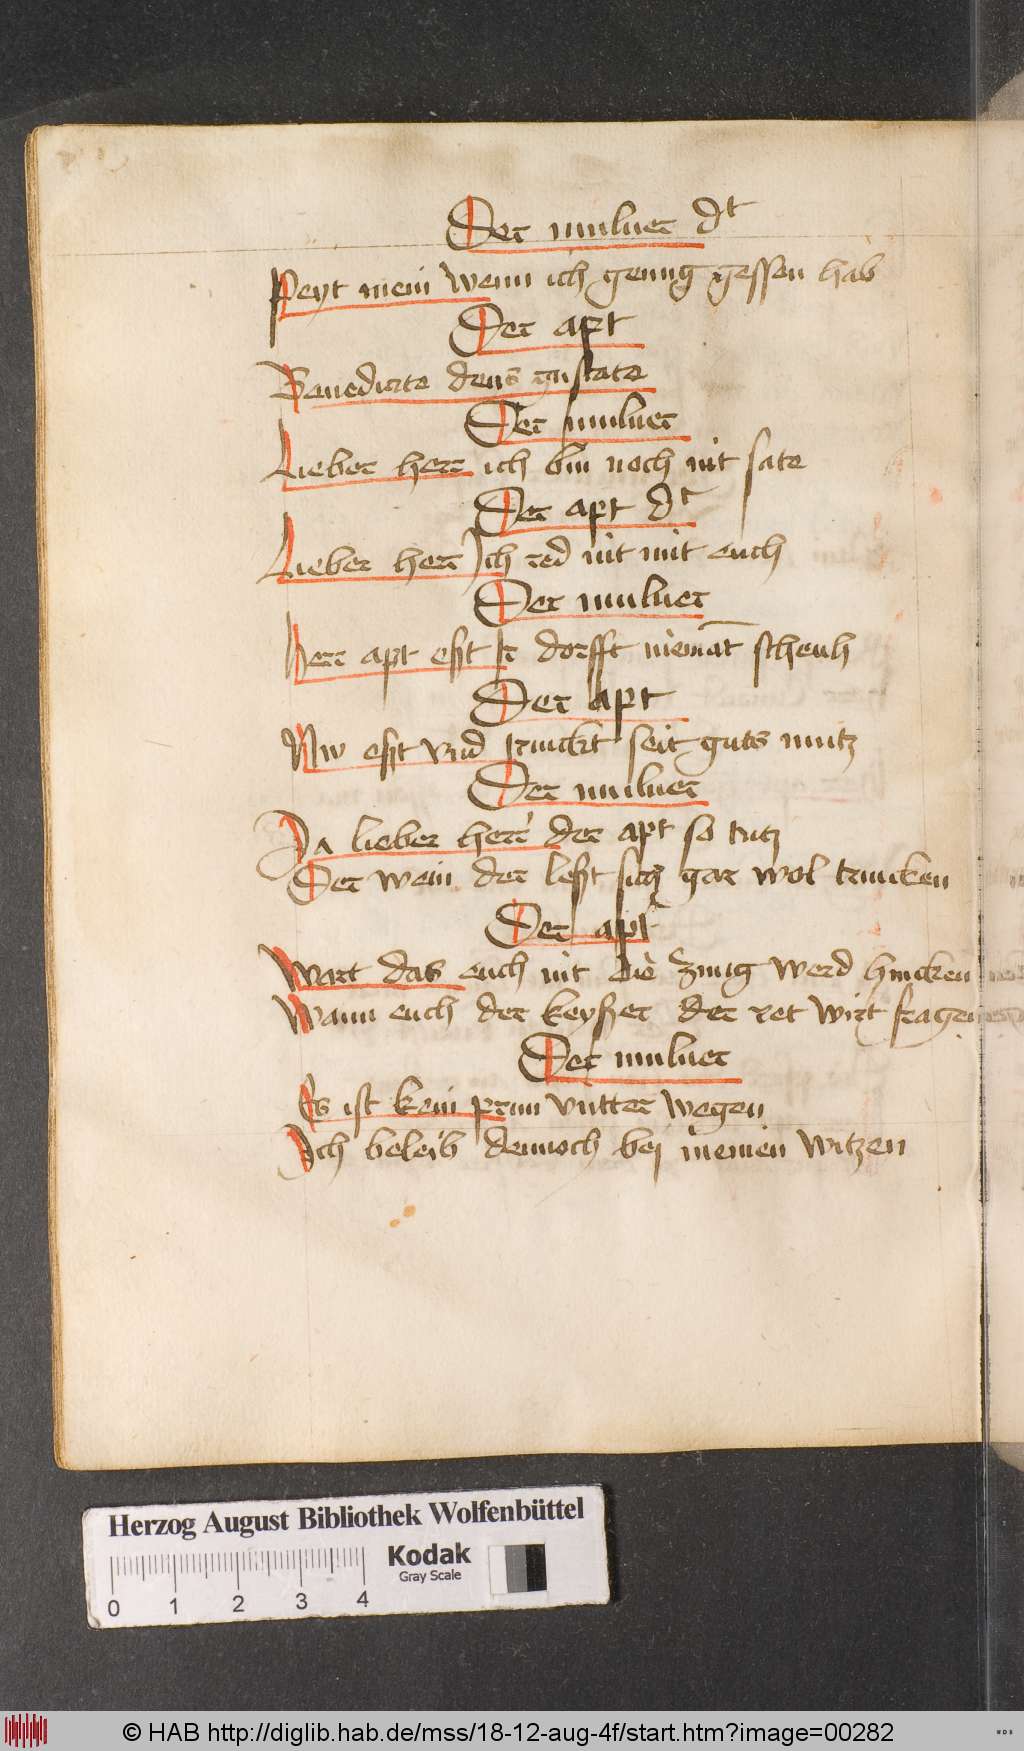 Der mulner dt
Peyt mein wenn ich genug gessen hab
Der apt
Benedicite deus gustate
Der mulner
Lieber herr ich bin noch nit sate
Der apt dt
Lieber herr Ich red nit mit euch
Der mulner
Herr apt eßt Ir dorfft niemāt scheuh
Der apt
Nw eßt vnd trinckt seit guts mutz
Der mulner
Ja lieber herr der apt so tutz
Der wein der leßt sich gar wol trincken
Der apt
Wart das euch nit die zung werd hincken
Wann euch der keyser der ret wirt fragen
Der mulner
Es ist kein prun vntter wegen
Ich beleib dennoch bej meinen witzen
Herzog August Bibliothek Wolfenbüttel
Kodak
Gray Scale
0 1 2 3 4
© HAB http://diglib.hab.de/mss/18-12-aug-4f/start.htm?image=00282